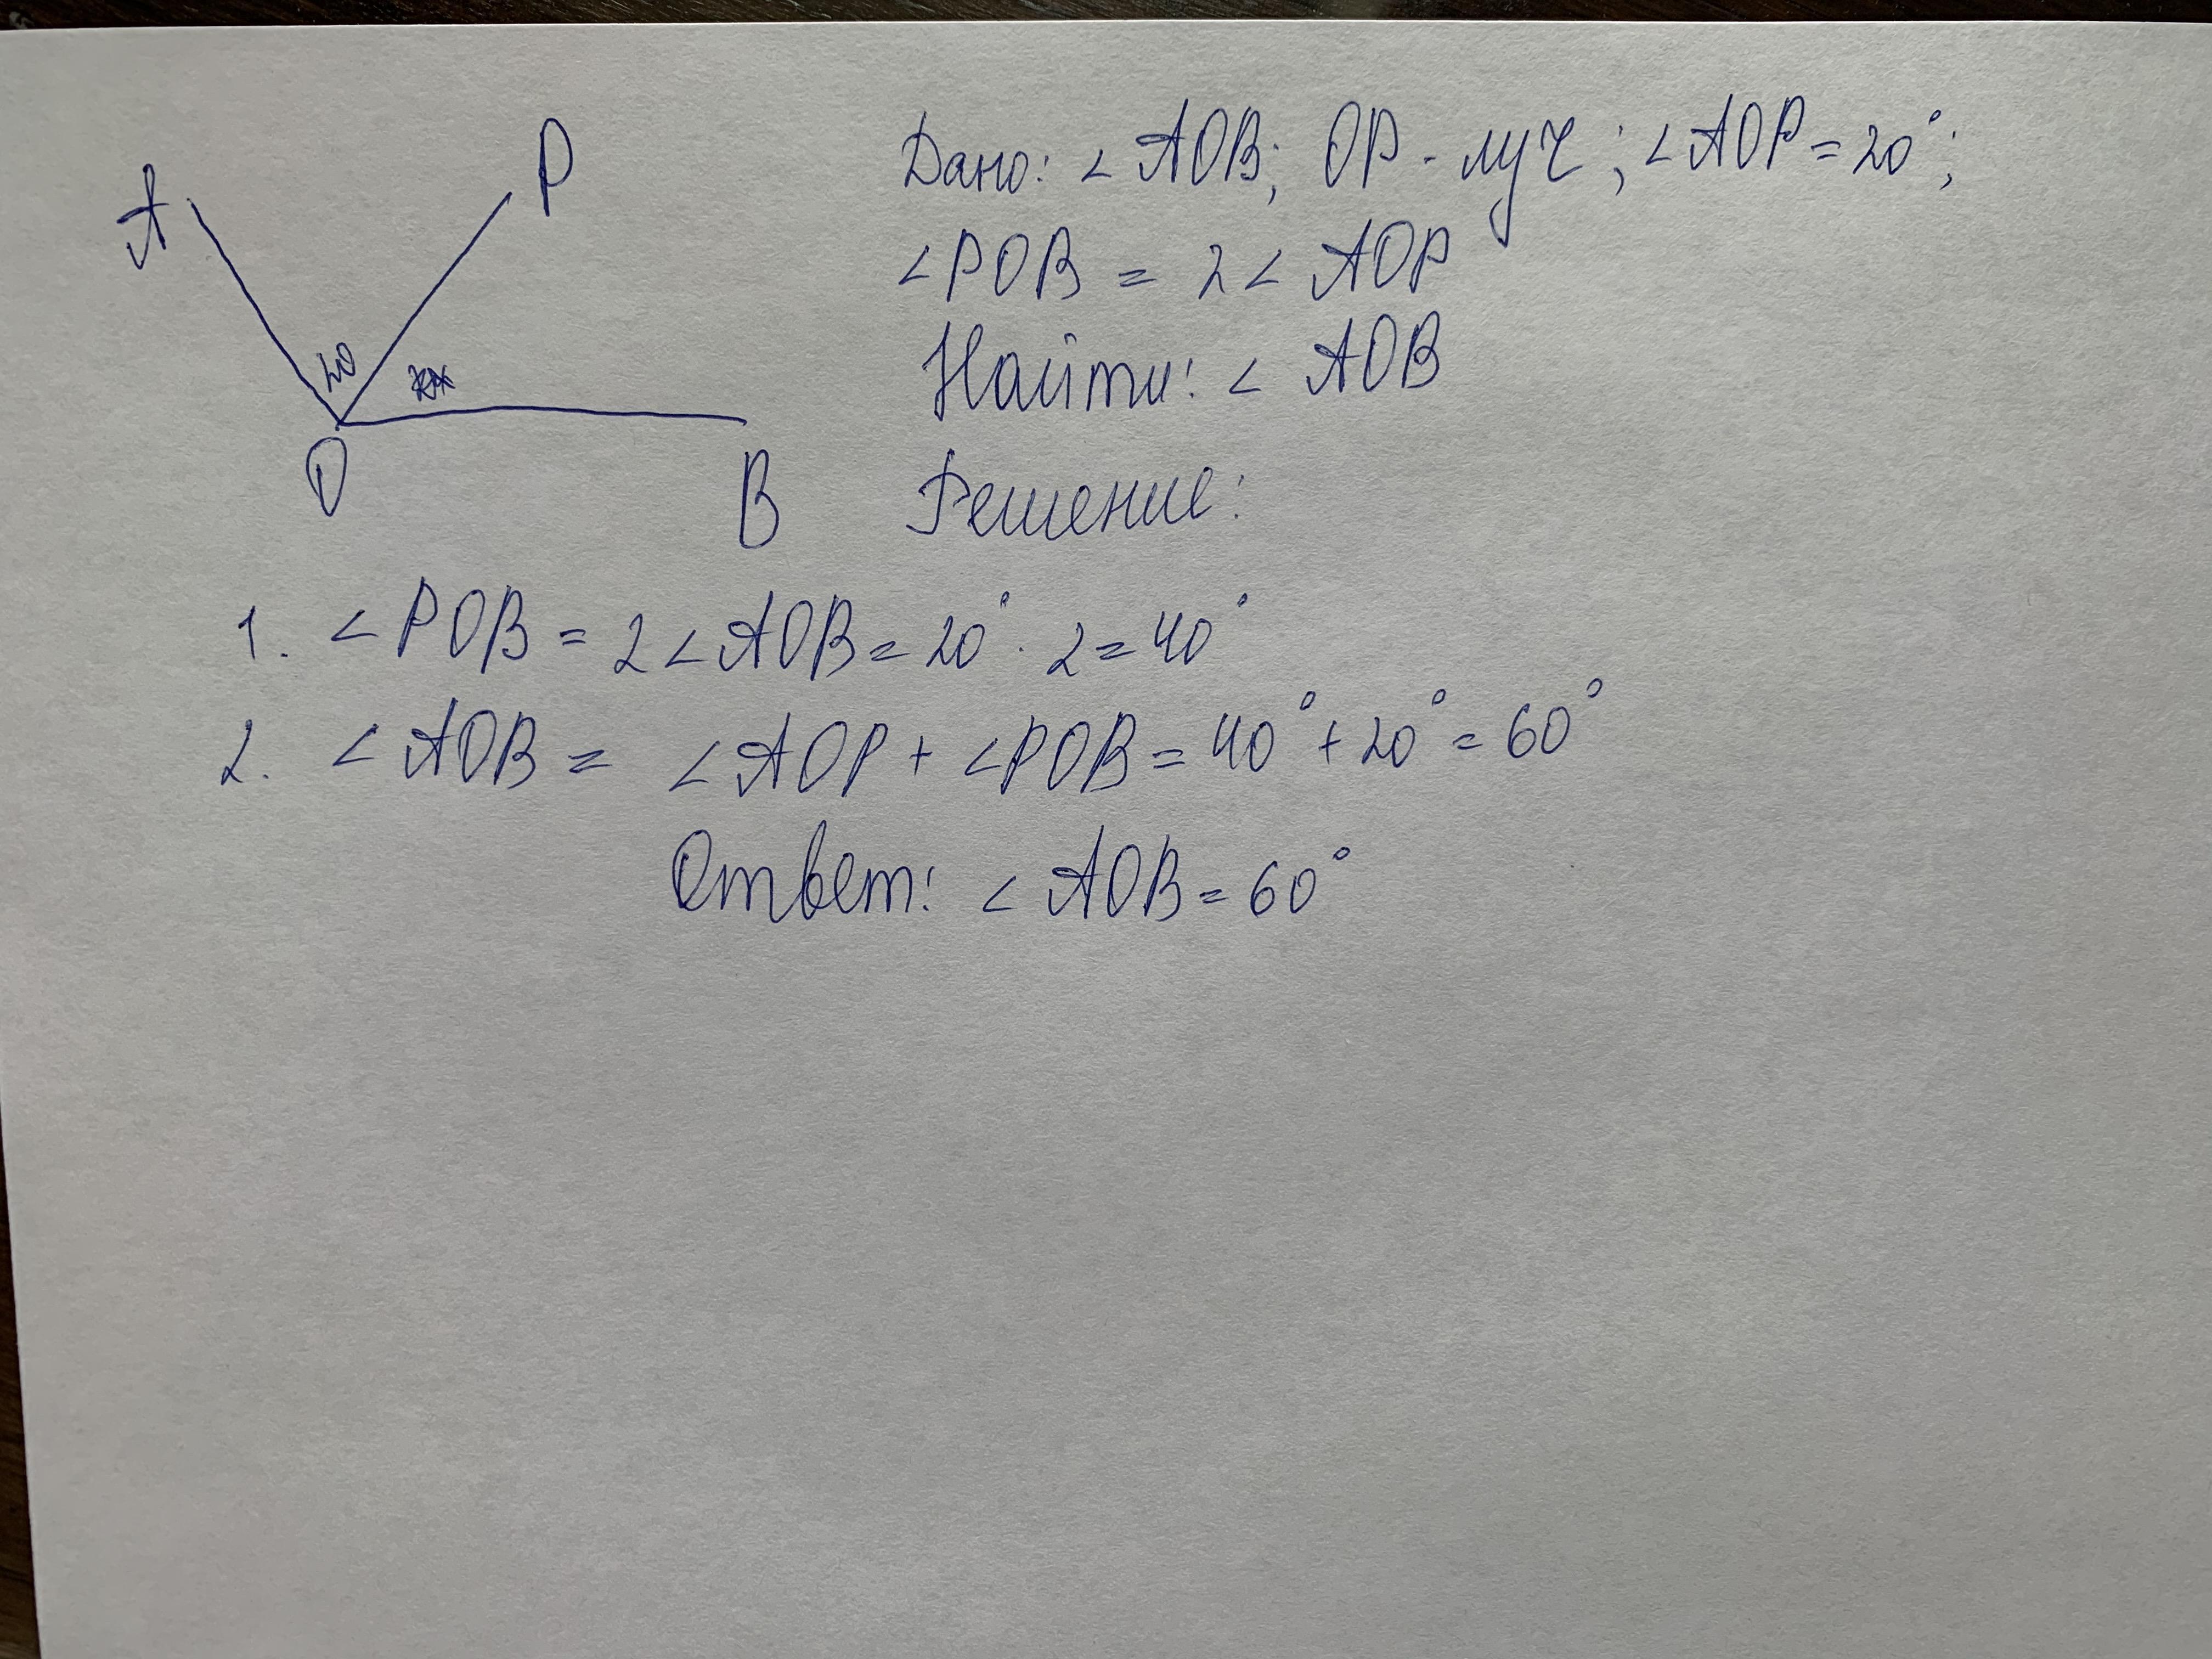 A
P
20
O
B
Дано: ∠ AOB; OP - луч; ∠ AOP = 20°;
∠ POB = 2 ∠ AOP
Найти: ∠ AOB
Решение:
1. ∠ POB = 2 ∠ AOB = 20° · 2 = 40°
2. ∠ AOB = ∠ AOP + ∠ POB = 40° + 20° = 60°
Ответ: ∠ AOB = 60°